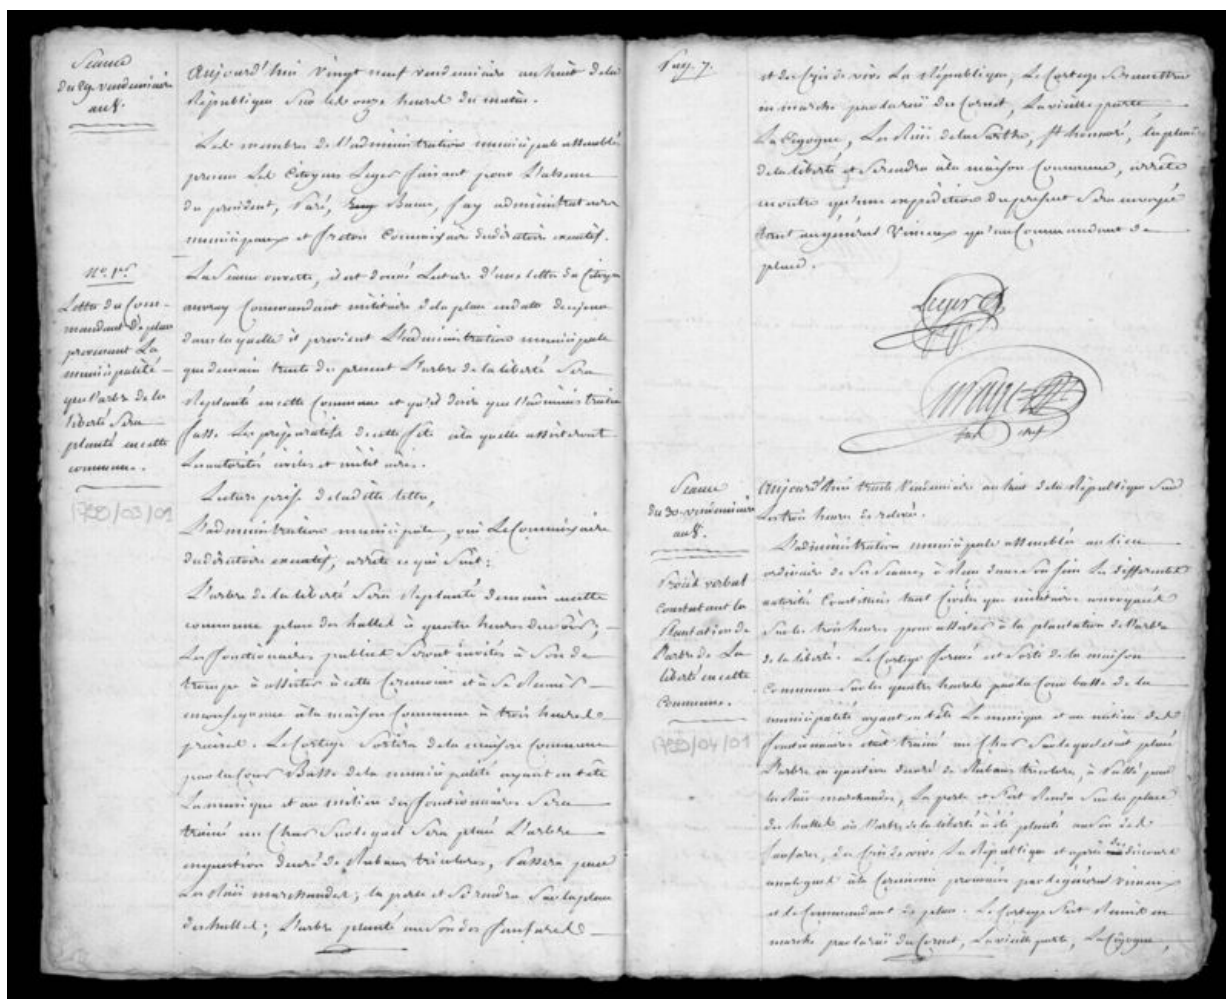 Seance
du 29 vendemiaire
an 8.
Aujourd'hui vingt neuf vendemiaire an huit de la
République Sur les onze heures du matin.
Les membres de l'administration municipale assemblés
presens Les Citoyens Leger faisant pour l'absence
du président, Paré, Bame, fay administrateurs
municipaux et freton Commissaire du directoire executif.
La Seance ouverte, il est donné Lecture d'une lettre du Citoyen
auvray Commandant militaire de la place en datte de ce jour
dans laquelle il previent L'administration municipale
que demain trente du present L'arbre de la liberté Sera
Replanté en cette Commune et qu'il desire que l'administration
fasse Les préparatifs de cette fête à laquelle assisteront
Les autorités civiles et militaires.
Lecture prise de la ditte lettre,
L'administration municipale, oui Le Commissaire
du directoire executif, arrête ce qui Suit:
L'arbre de la liberté Sera Replanté demain en cette
commune place des halles à quatre heures du soir;
Les fonctionaires publics Seront invités à Son de
trompe à assister à cette Ceremonie et à Se Reunir
à la maison Commune à trois heures
précises. Le Cortege Sortira de la maison Commune
par la Cour Basse de la municipalité ayant en tête
La musique et au milieu des fonctionaires Sera
trainé un Char Sur lequel Sera placé L'arbre
en question decoré de Rubans tricolores, Passera par
La Rüe marchande; la porte et Se rendra Sur la place
des halles; L'arbre planté au Son des fanfares
N.º 1.er
Lettre du Com-
mandant de place
prevenant La
municipalité
que l'arbre de la
liberté Sera
planté en cette
commune.
1799/03/01
Pag. 7.
et des Cris de vive La République, Le Cortege Se remettra
en marche par la rüe du Cornet, La vieille porte
La Cigogne, La Rüe de la Sarthe, St honoré, la place
de la liberté et Se rendra à la maison Commune, arrête
en outre qu'une expédition du present Sera envoyée
tant au général Vimeux qu'au Commandant de
place.
Leger
Seance
du 30 vendemiaire
an 8.
Aujourd'hui trente Vendemiaire an huit de la République Sur
Les trois heures de relevée.
L'administration municipale assemblée au lieu
ordinaire de Ses Seances, à Reuni dans Son Sein Les differentes
autorités Constituées tant Civiles que militaires convoquées
Sur les trois heures pour assister à la plantation de l'arbre
de la liberté. Le Cortege formé est Sorti de la maison
Commune Sur les quatre heures par la Cour basse de la
municipalité ayant en tête La musique et au milieu des
fonctionnaires etait trainé un Char Sur lequel etait placé
L'arbre en question decoré de Rubans tricolores, à Passé par
la Rüe marchande, La porte et S'est Rendu Sur la place
des halles où l'arbre de la liberté à été planté au Son des
fanfares, des Cris de vive La République et après des discours
analogues à la Ceremonie prononcés par le général vimeux
et le Commandant de place. Le Cortege S'est Remis en
marche par la rüe du Cornet, La vieille porte, La Cigogne,
Procès verbal
Constatant la
Plantation de
l'arbre de La
liberté en cette
Commune.
1799/04/01